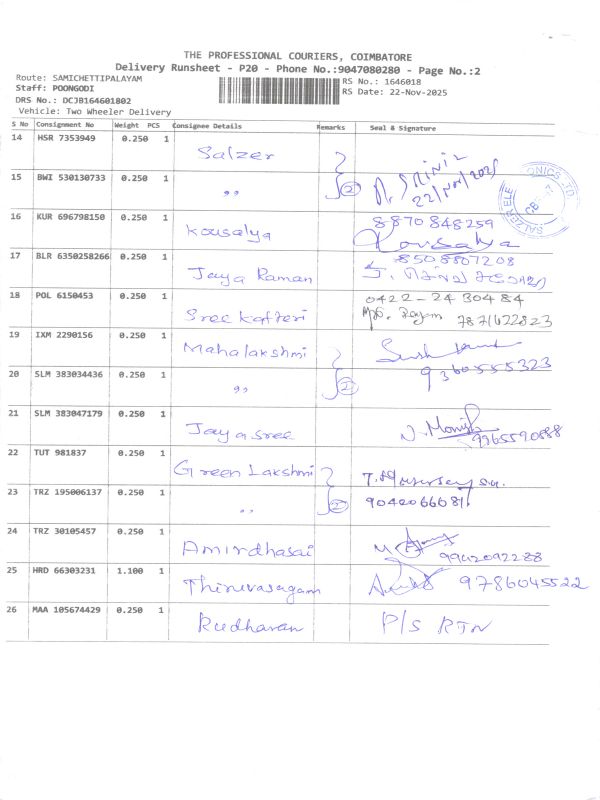 THE PROFESSIONAL COURIERS, COIMBATORE
Delivery Runsheet - P20 - Phone No.:9047080280 - Page No.:2
Route: SAMICHETTIPALAYAM
RS No.: 1646018
Staff: POONGODI
RS Date: 22-Nov-2025
DRS No.: DCJB164601802
Vehicle: Two Wheeler Delivery
S No Consignment No Weight PCS Consignee Details Remarks Seal & Signature
14 HSR 7353949 0.250 1 Salzer
15 BWI 530130733 0.250 1 ,, 2 22/Nov/2025
SALZER ELE
16 KUR 696798150 0.250 1 Kousalya 8870848259
Kousalya
17 BLR 6350258266 0.250 1 Jaya Raman 8508807208
18 POL 6150453 0.250 1 Sree Kafteri 0422-24 304 84
19 IXM 2290156 0.250 1 Mahalakshmi
20 SLM 383034436 0.250 1 ,, 2 9360555323
21 SLM 383047179 0.250 1 Jayasree 9965590888
22 TUT 981837 0.250 1 Green Lakshmi
23 TRZ 195006137 0.250 1 ,, 2
24 TRZ 30105457 0.250 1 Amirdhasai 9942092288
25 HRD 66303231 1.100 1 Thiruvasagam 9786045522
26 MAA 105674429 0.250 1 Rudharan P/S RTN